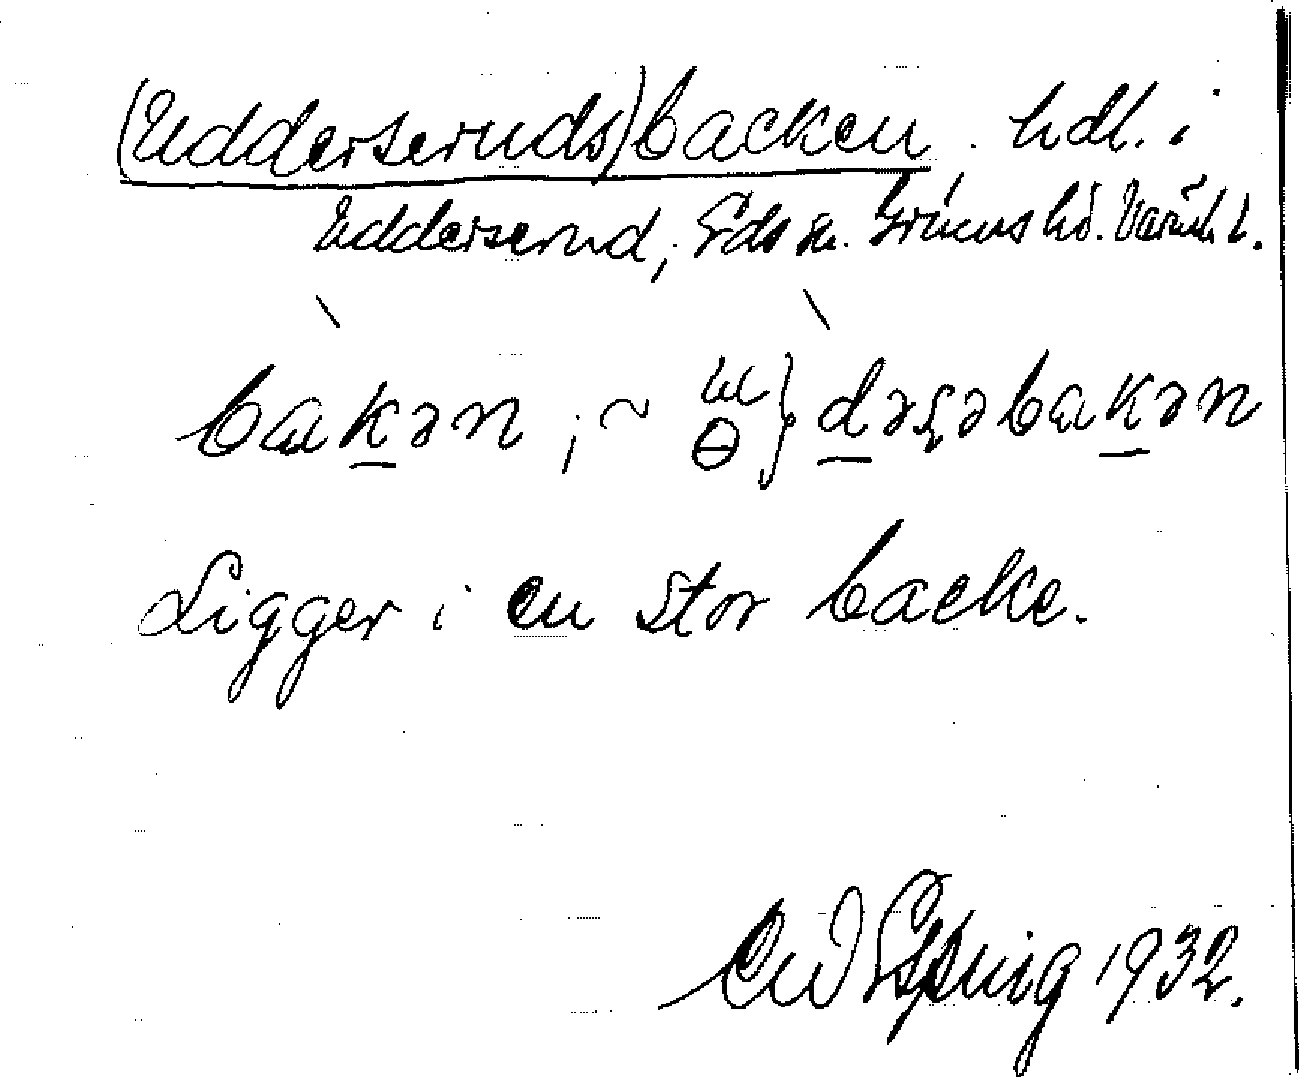 (Uddersruds)backen. hdl. i
Udderserud, Eds sn. Grums hd. Värml. l.
bakən ; ~ dəʂəbakən
Ligger i en stor backe.
1932.